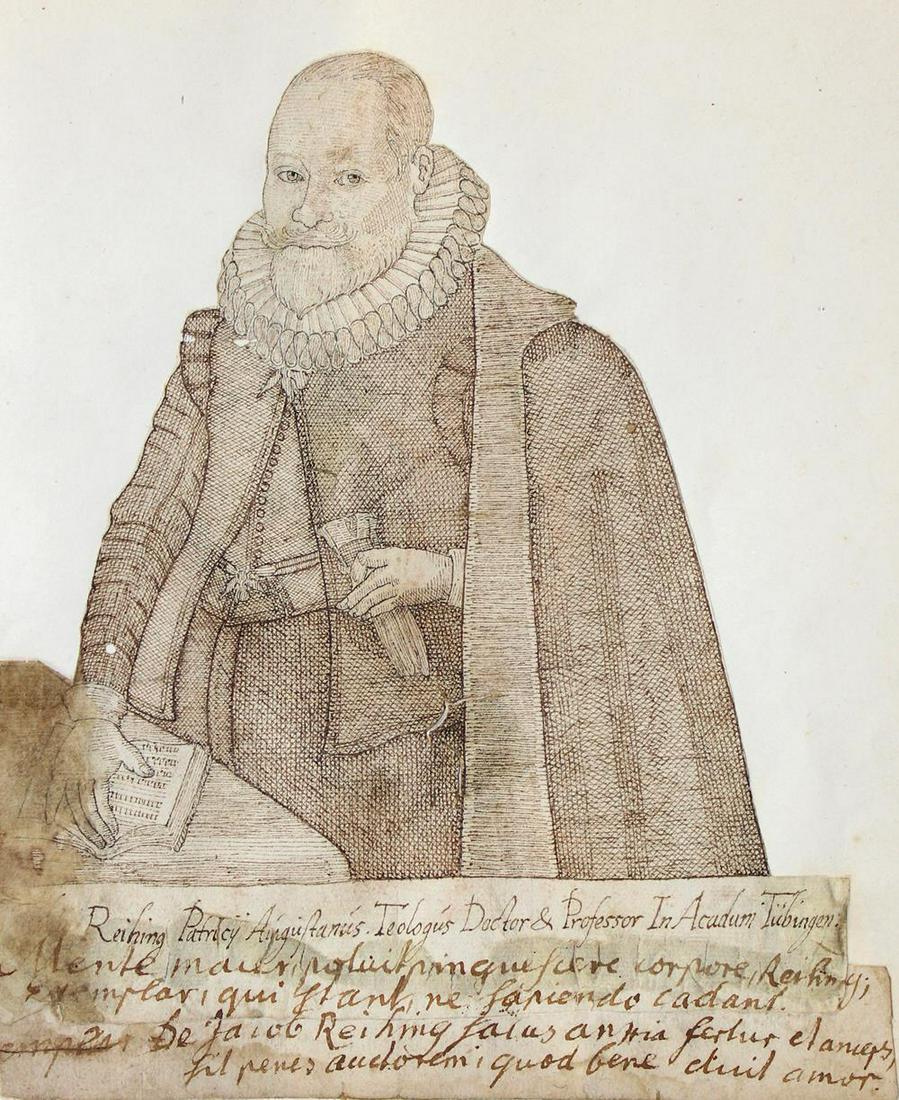 Reihing Patricij Augustanús. Teologús Doctor & Professor In Acadum: Tübingen:
Mente potuit pinguescere corpore, Reihing;
qui stant, ne sapiendo cadant.
De Jacob Reihing anxia fertur et anceps,
sit penes auctorem, quod bene amor.